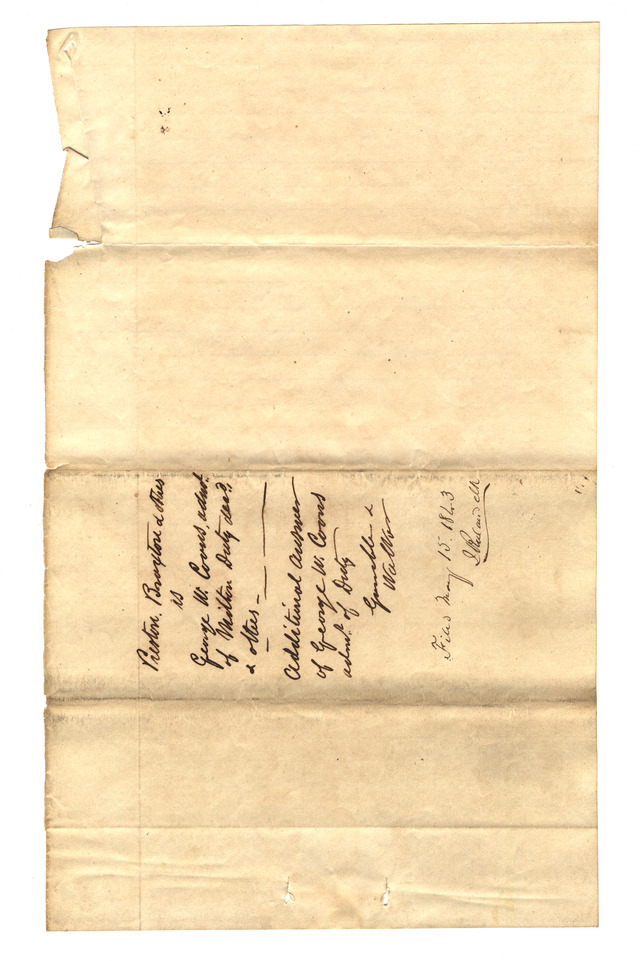 Preston. Braxton & others
vs
George W. Coons, admr.
of Milton Duty decd.
& others
Additional Answer
of George W. Coons
admr. of Duty
Gamble &
Walker
Filed May 15. 1843